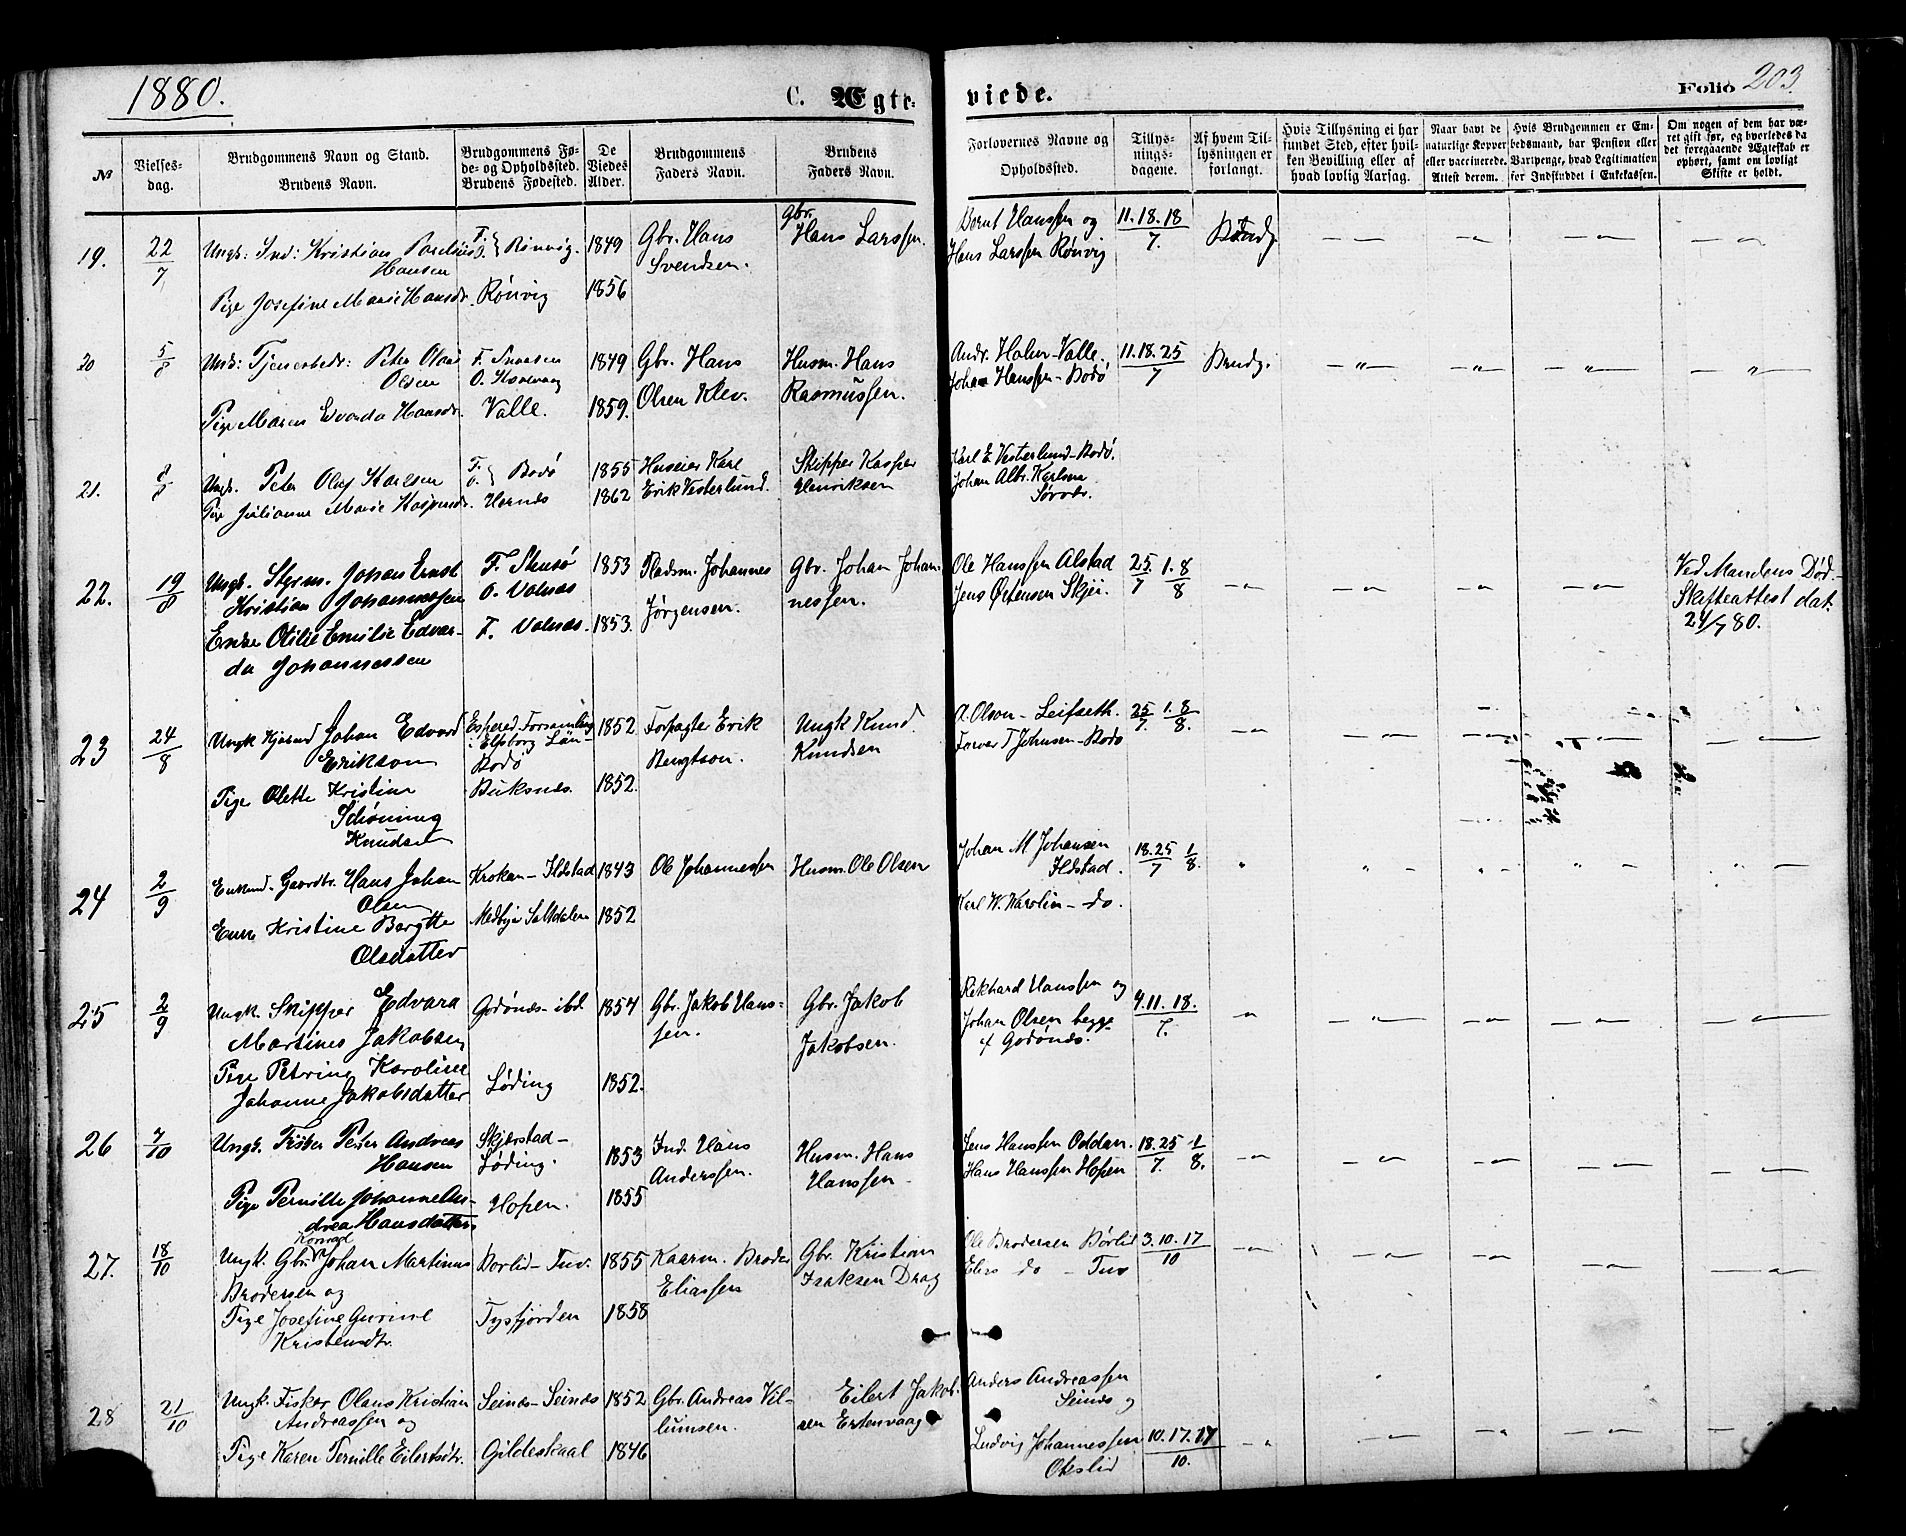 1880.
C. Ægte-
viede.
Folio 203.
№
Vielses-
dag.
Brudgommens Navn og Stand.
Brudens Navn.
Brudgommens Fø-
de- og Opholdssted.
Brudens Fødested.
De
Viedes
Alder.
Brudgommens
Faders Navn.
Brudens
Faders Navn.
Forlovernes Navne og
Opholdssted.
Tillys-
nings-
dagene.
Af hvem Til-
lysningen er
forlangt.
Hvis Tillysning ei har
fundet Sted, efter hvil-
ken Bevilling eller af
hvad lovlig Aarsag.
Naar havt de
naturlige Kopper
eller vaccinerede.
Attest derom.
Hvis Brudgommen er Em-
bedsmand, har Pension eller
Vartpenge, hvad Legitimation
for Indskuddet i Enkekassen.
Om nogen af dem har væ-
ret gift før, og hvorledes da
det foregaaende Ægteskab er
ophørt, samt om lovligt
Skifte er holdt.
19.
22/7
Ungk: Ind: Kristian
Hansen
Pige Josefine Marie Hansdr.
F.
O. } Rønvig.
Rønvig
1849
1856
Gbr. Hans
Svendsen.
Gbr.
Hans Larssen.
Bernt Hanssen og
Hans Larssen Rønvig
11.18.18
7.
Brudg.
20
5/8
Ungk: Tjenestedr: Peter Olaus
Olsen
Pige Maren Edvarda Hansdr.
F. Snaasen
O.
Valle.
1849
1859.
Gbr. Hans
Olsen Klev.
Husm. Hans
Rasmussen.
Andr. Holm-Valle.
Johan Hanssen-Bodø
11.18.25
7
Brudg.
21.
8/8
Ungk. Peter Olaf Karlsen
Pige Julianne Marie Kaspersdr.
F.
O. } Bodø
Hernes
1855
1862
Huseier Karl
Erik Vesterlund.
Skipper Kasper
Henriksen
Karl E. Vesterlund-Bodø.
Johan Albr. Karlsen
22.
19/8
Ungk. Styrm. Johan Ernst
Kristian Johannessen
Enke Otilie Emilie Edvar-
da Johannessen
F. Stensø
O. Valnæs
F. Valnæs.
1853
1853.
Pladsm. Johannes
Jørgensen.
Gbr. Johan Johan-
nessen.
Ole Hanssen Alstad
Jens Østensen Skjei.
25/7 1.8/8
Ved Mandens Død-
Skifteattest dat.
24/7 80.
23
24/8
Ungk Johan Edvard
Erikson
Pige Olette Kristine
Schønning
Knudsen
Espered Forsamling
i Elfsborg Län-
Bodø
Buksnes.
1852
1852.
Forpagter Erik
Bengtson.
Ungk Knud
Knudsen
A. Olson-Leifseth.
Farver T Johnsen-Bodø
25/7 1.8/8.
24
2/9
Enkemd. Gaardbr. Hans Johan
Olsen
Enke Kristine Bergtte
Olsdatter
Krokan-Ildstad
Medbye Saltdalen
1843
1852
Ole Johannessen
Husm. Ole Olsen
Johan M Johansen
Ildstad.
Karl W. Karolin-do.
18.25/7 1/8.
25
2/9
Ungk. Skipper Edvard
Martines Jakobsen
Pige Petrine Karoline
Johanne Jakobsdatter
Godønes ibd
Løding
1854
1852.
Gbr. Jakob Hans-
sen.
Gbr. Jakob
Jakobsen.
Rikhard Hanssen og
Johan Olsen begge
af Godønes.
4.11.18.
7.
26
7/10
Ungk. Fisker Peter Andreas
Hansen
Pige Pernille Johanne An-
drea Hansdatter
Skjerstad-
Løding.
Hopen.
1853
1855
Ind. Hans
Anderssen.
Husm. Hans
Hanssen
Jens Hanssen Oddan.
Hans Hanssen Hopen
18.25/7. 1/8.
27.
18/10
Konrad
Ungk. Gbr. Johan Martinus
Brodersen og
Pige Josefine Gurine
Kristensdtr.
Børlid-Tuv.
Tysfjorden
1855
1858
Kaarm. Broder
Eliassen
Gbr. Kristian
Isaksen Drag
Ole Brodersen Børlid
Elias do - Tuv
3.10.17
10
28
21/10
Ungk. Fisker Olaus Kristian
Andreassen og
Pige Karen Pernille Eilertsdtr.
Seines-Seines
Gildeskaal
1852
1846
Gbr. Andreas Vil-
lumsen.
Eilert Jakob-
sen Estenvaag
Anders Andreassen
Seines og
Ludvig Johannessen
Okslid
10.17.17
10.